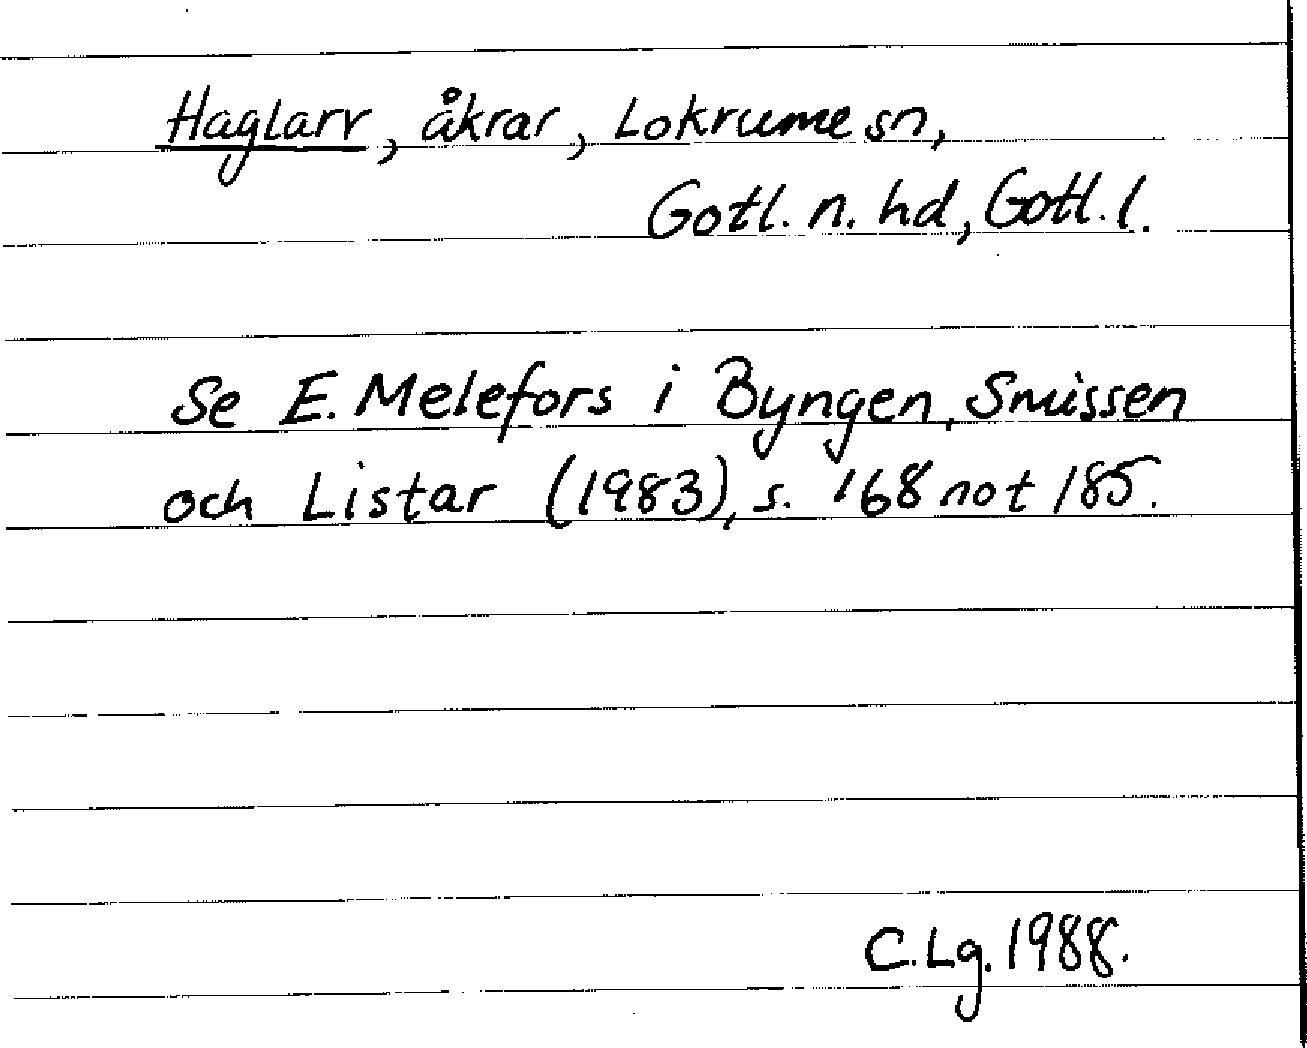 Haglarr, åkrar, Lokrume sn,
Gotl. n. hd, Gotl. l.
Se E. Melefors i Byngen, Smissen
och Listar (1983), s. 168 not 185.
C.Lg. 1988.